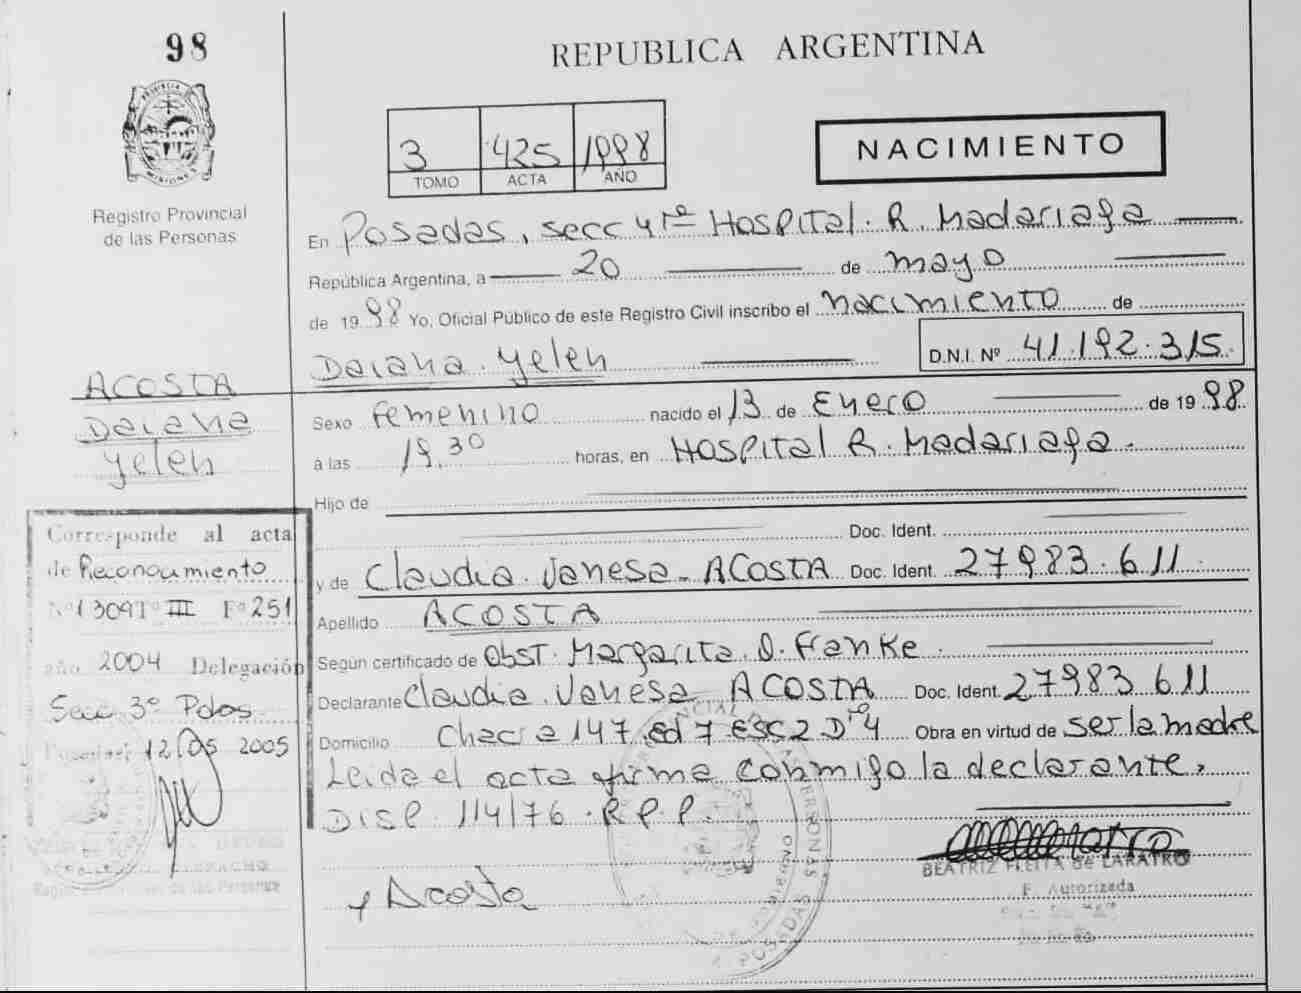 98
REPUBLICA ARGENTINA
3 425 1998
TOMO ACTA AÑO
NACIMIENTO
Registro Provincial
de las Personas
En Posadas, secc 4ta Hospital. R. Madariaga
República Argentina, a 20 de mayo
de 1998 Yo, Oficial Público de este Registro Civil inscribo el nacimiento de
Daiana Yelen D.N.I. Nº 41.192.315.
ACOSTA
Daiana
Yelen
Sexo Femenino nacido el 13 de Enero de 1998.
a las 19.30 horas, en Hospital R. Madariaga.
Hijo de
Doc. Ident.
y de Claudia Vanesa ACOSTA Doc. Ident. 27983.611
Apellido ACOSTA
Según certificado de Obst. Margarita O. Franke
Declarante Claudia Vanesa ACOSTA Doc. Ident. 27983611
Domicilio Chacra 147 ed 7 ESC2 Dto 4 Obra en virtud de ser la madre
Leida el acta firma conmigo la declarante,
DISP. 114/76. R.P.P.
Corresponde al acta
de Reconocimiento
Nº 1309 Tº III Fº 251
año 2004 Delegación
Secc 3º Pdas.
Posadas, 12/05 2005
Acosta
BEATRIZ FLEITA de LARATRO
F. Autorizada
POSADAS